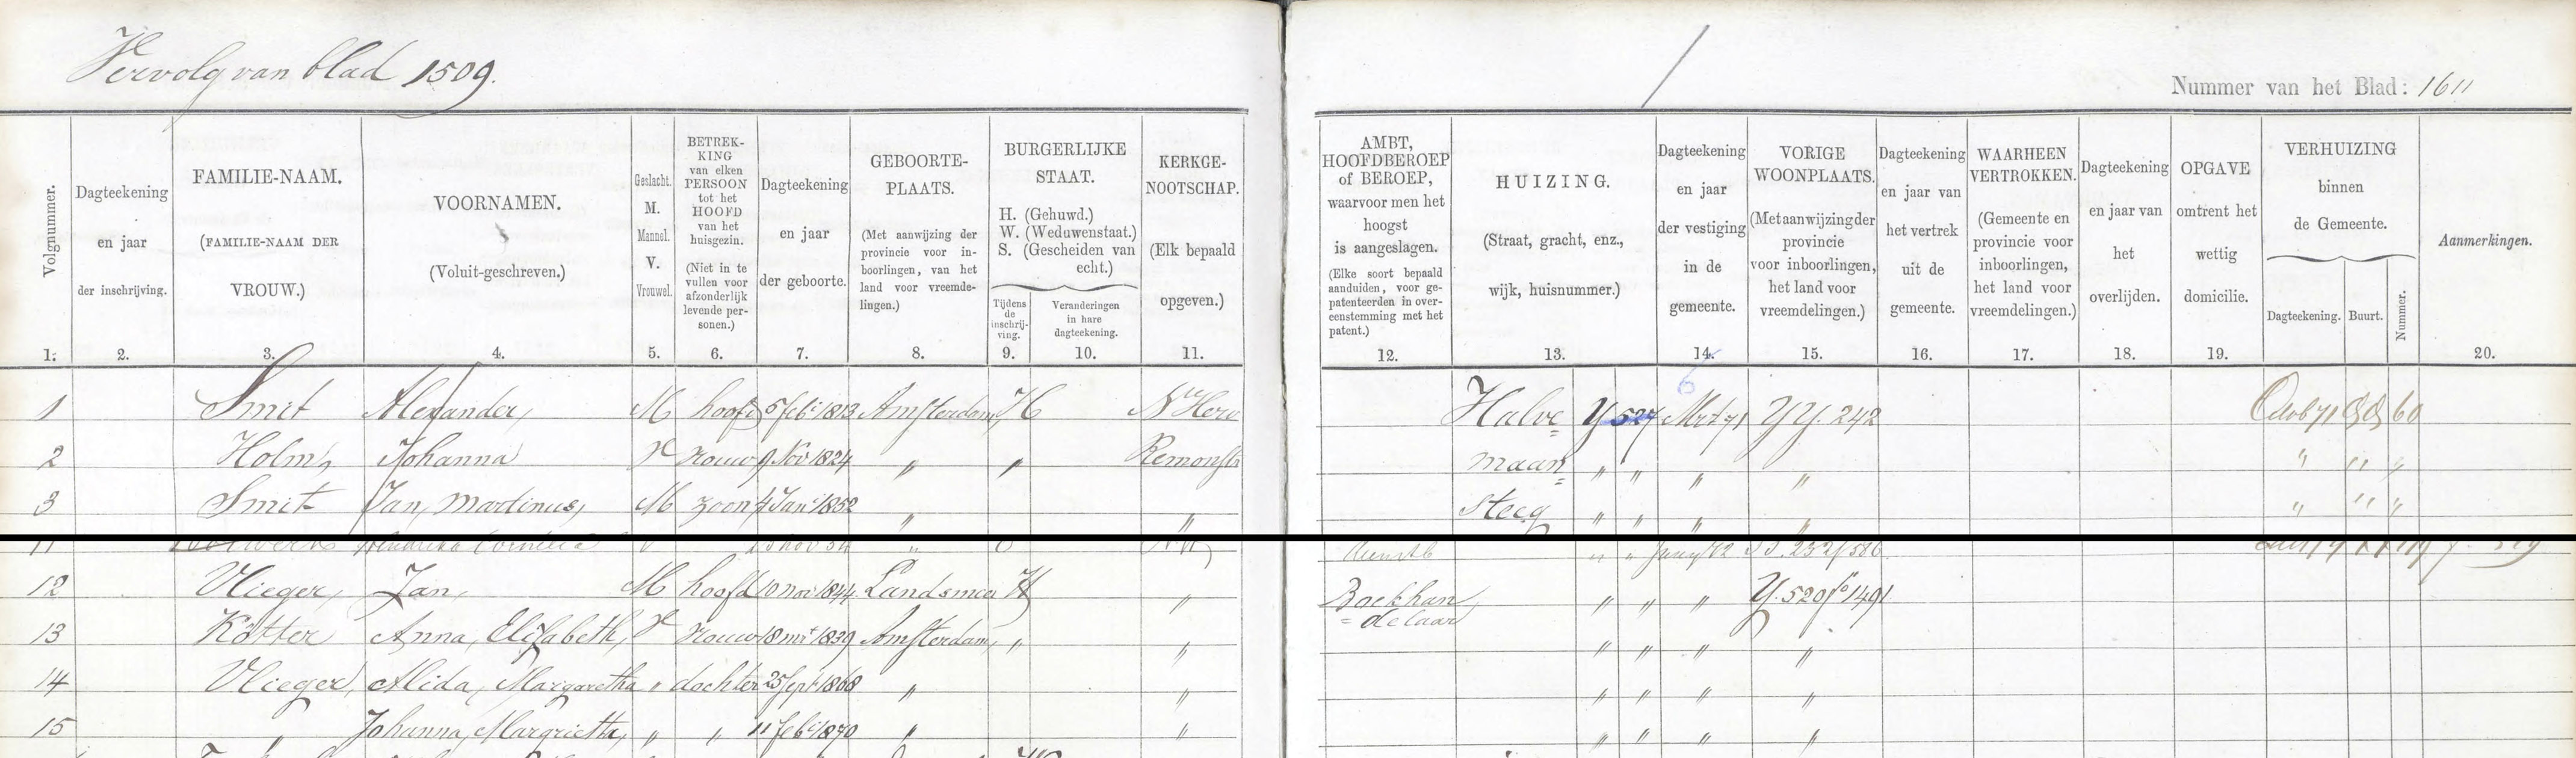 Vervolg van blad 1509.
Nummer van het Blad: 1611
Volgnummer. 1.
Dagteekening en jaar der inschrijving. 2.
FAMILIE-NAAM. (FAMILIE-NAAM DER VROUW.) 3.
VOORNAMEN. (Voluit-geschreven.) 4.
Geslacht. M. Mannel. V. Vrouwel. 5.
BETREKKING van elken PERSOON tot het HOOFD van het huisgezin. (Niet in te vullen voor afzonderlijk levende personen.) 6.
Dagteekening en jaar der geboorte. 7.
GEBOORTE-PLAATS. (Met aanwijzing der provincie voor inboorlingen, van het land voor vreemdelingen.) 8.
BURGERLIJKE STAAT. H. (Gehuwd.) W. (Weduwenstaat.) S. (Gescheiden van echt.)
Tijdens de inschrijving. 9.
Veranderingen in hare dagteekening. 10.
KERKGENOOTSCHAP. (Elk bepaald opgeven.) 11.
AMBT, HOOFDBEROEP of BEROEP, waarvoor men het hoogst is aangeslagen. (Elke soort bepaald aanduiden, voor gepatenteerden in overeenstemming met het patent.) 12.
HUIZING. (Straat, gracht, enz., wijk, huisnummer.) 13.
Dagteekening en jaar der vestiging in de gemeente. 14.
VORIGE WOONPLAATS. (Met aanwijzing der provincie voor inboorlingen, het land voor vreemdelingen.) 15.
Dagteekening en jaar van het vertrek uit de gemeente. 16.
WAARHEEN VERTROKKEN. (Gemeente en provincie voor inboorlingen, het land voor vreemdelingen.) 17.
Dagteekening en jaar van het overlijden. 18.
OPGAVE omtrent het wettig domicilie. 19.
VERHUIZING binnen de Gemeente. Dagteekening. Buurt. Nummer.
Aanmerkingen. 20.
1 Smit Alexander, M hoofd 5 feb 1813 Amsterdam, H Ned Herv Halve Y 527 Mrt 71 YY. 242 60
2 Holm, Johanna V vrouw 9 Nov 1824 " " Remonstr maan " " " " " " "
3 Smit Jan, Martinus, M zoon 4 Jan 1852 " " Steeg " " " " " " "
11 Hendrika Cornelia V " Dienstb " "
12 Vlieger, Jan, M hoofd 10 nov 1844 Landsmeer H " Boekhandelaar " " " Y. 520 fo 1491
13 Kötter Anna, Elisabeth, V vrouw 18 mrt 1839 Amsterdam, " " " " " "
14 Vlieger, Alida, Margaretha " dochter 25 sept 1868 " " " " " "
15 " Johanna, Margrietha, " " 11 feb 1870 " " " " " "